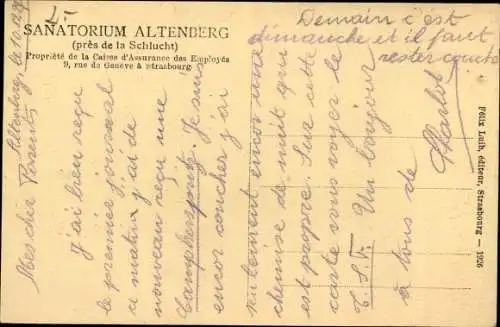 SANATORIUM ALTENBERG
(près de la Schlucht)
Propriété de la Caisse d'Assurance des Employés
9, rue de Genève à Strasbourg
Altenberg, le 10.
Mes cher Parents
J'ai bien reçu
le premier journal
ce matin j'ai de
nouveau reçu une
Campherspritz. Je suis
encor coucher j'ai
nutement encor une
chemise de nuit qui
est propre. Sur cette
carte vous voyer le
T.S.F. Un bonjour
à tous de
Charlot
Demain c'est
dimanche et il faut
rester couché
Félix Luib, éditeur, Strasbourg — 1926